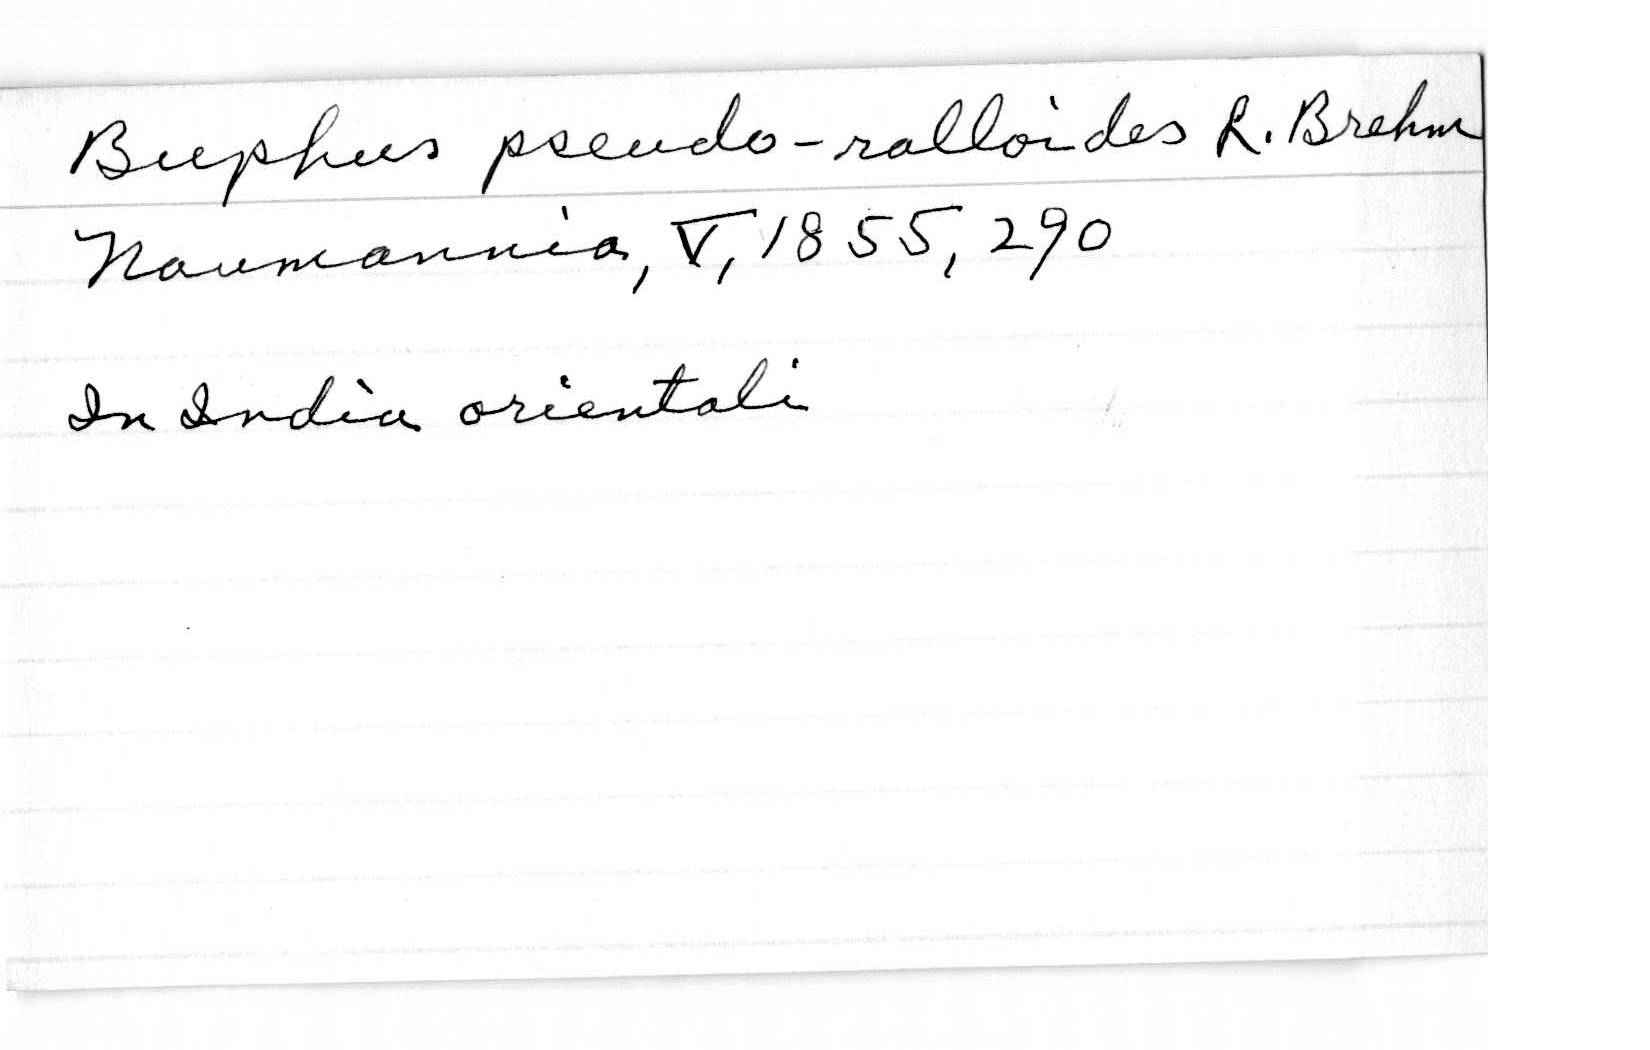 Buphus pseudo-ralloides R. Brehm
Naumannia, V, 1855, 290
In India orientali